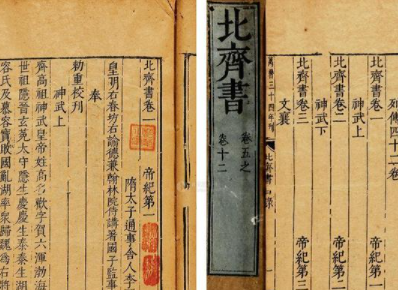 北齊書卷一 帝紀第一
隋太子通事舍人李
皇明右春坊右諭德兼翰林院侍講署國子監事
奉
勅重校刊
神武上
齊高祖神武皇帝姓高名歡字賀六渾渤海
世祖隱晉玄菟太守隱生慶慶生泰泰生湖
容氏及慕容寶敗國亂湖率衆歸魏爲右將
北齊書
卷五之
卷十二
列傳四十二卷
北齊書卷一 帝紀第一
神武上
北齊書卷二 帝紀第二
神武下
北齊書卷三 帝紀第三
文襄
萬曆三十四年刊